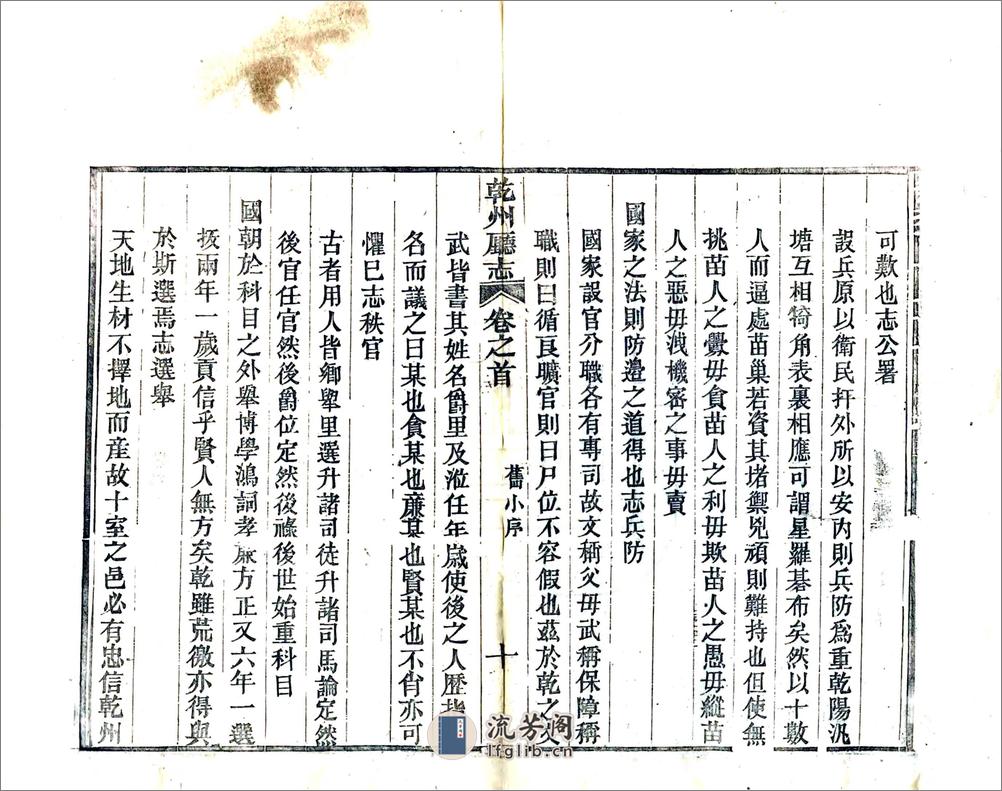 可歎也志公署
設兵原以衛民扞外所以安内則兵防爲重乾陽汎
塘互相犄角表裏相應可謂星羅碁布矣然以十數
人而逼處苗巢若資其堵禦兇頑則難持也但使無
挑苗人之釁毋貪苗人之利毋欺苗人之愚毋縱苗
人之惡毋洩機密之事毋賣
國家之法則防邊之道得也志兵防
國家設官分職各有專司故文稱父母武稱保障稱
職則曰循良曠官則曰尸位不容假也茲於乾之文
乾州廳志
卷之首
舊小序
十
武皆書其姓名爵里及涖任年歲使後之人歷指
名而議之曰某也貪某也廉某也賢某也不肖亦可
懼巳志秩官
古者用人皆鄉舉里選升諸司徒升諸司馬論定然
後官任官然後爵位定然後祿後世始重科目
國朝於科目之外舉博學鴻詞孝廉方正又六年一選
拔兩年一歲貢信乎賢人無方矣乾雖荒徼亦得與
於斯選焉志選舉
天地生材不擇地而産故十室之邑必有忠信乾州
流芳阁
lfglib.cn